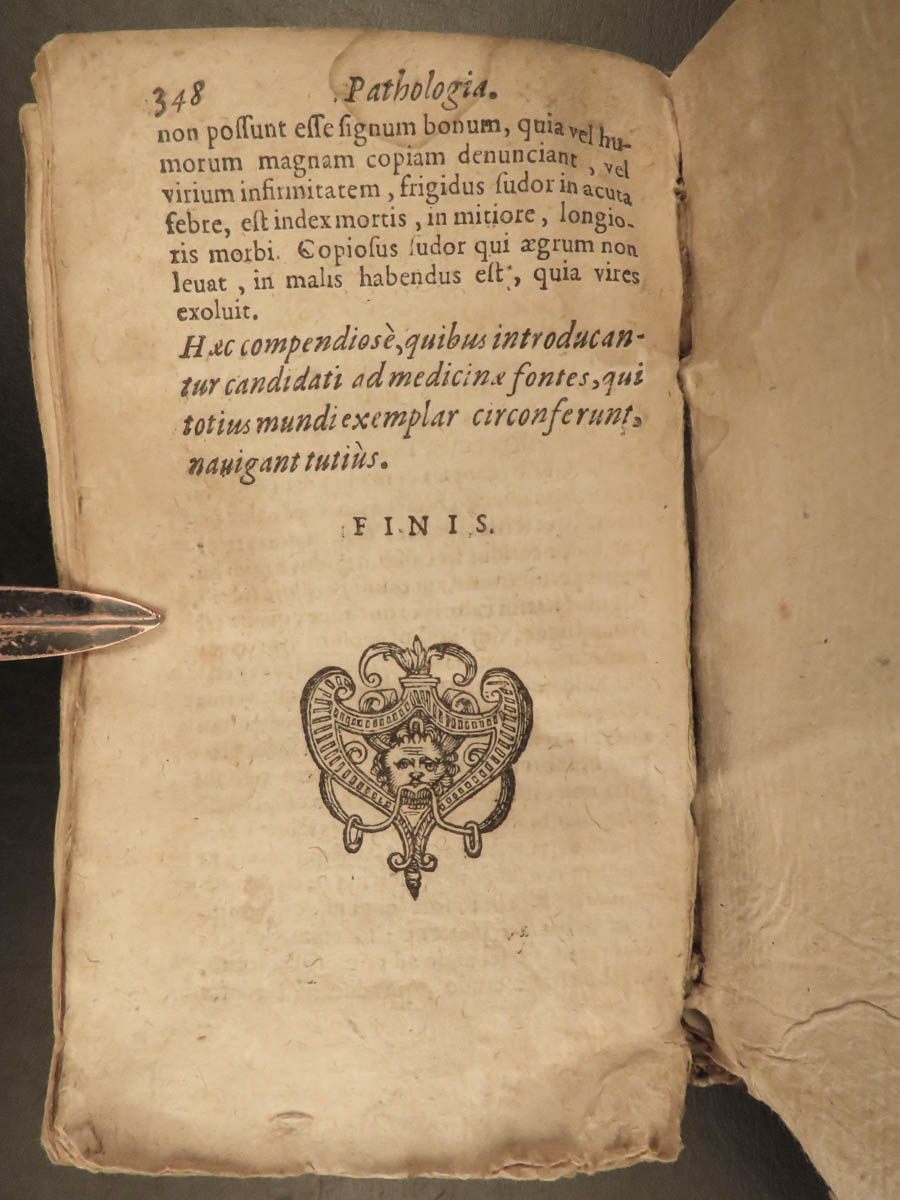 348 Pathologia.
non poſſunt eſſe ſignum bonum, quia vel hu-
morum magnam copiam denunciant, vel
virium infirmitatem, frigidus ſudor in acuta
febre, eſt index mortis, in mitiore, longio-
ris morbi. Copioſus ſudor qui ægrum non
leuat, in malis habendus eſt, quia vires
exoluit.
Hæc compendiosè, quibus introducan-
tur candidati ad medicinæ fontes, qui
totius mundi exemplar circonferunt,
nauigant tutiùs.
FINIS.